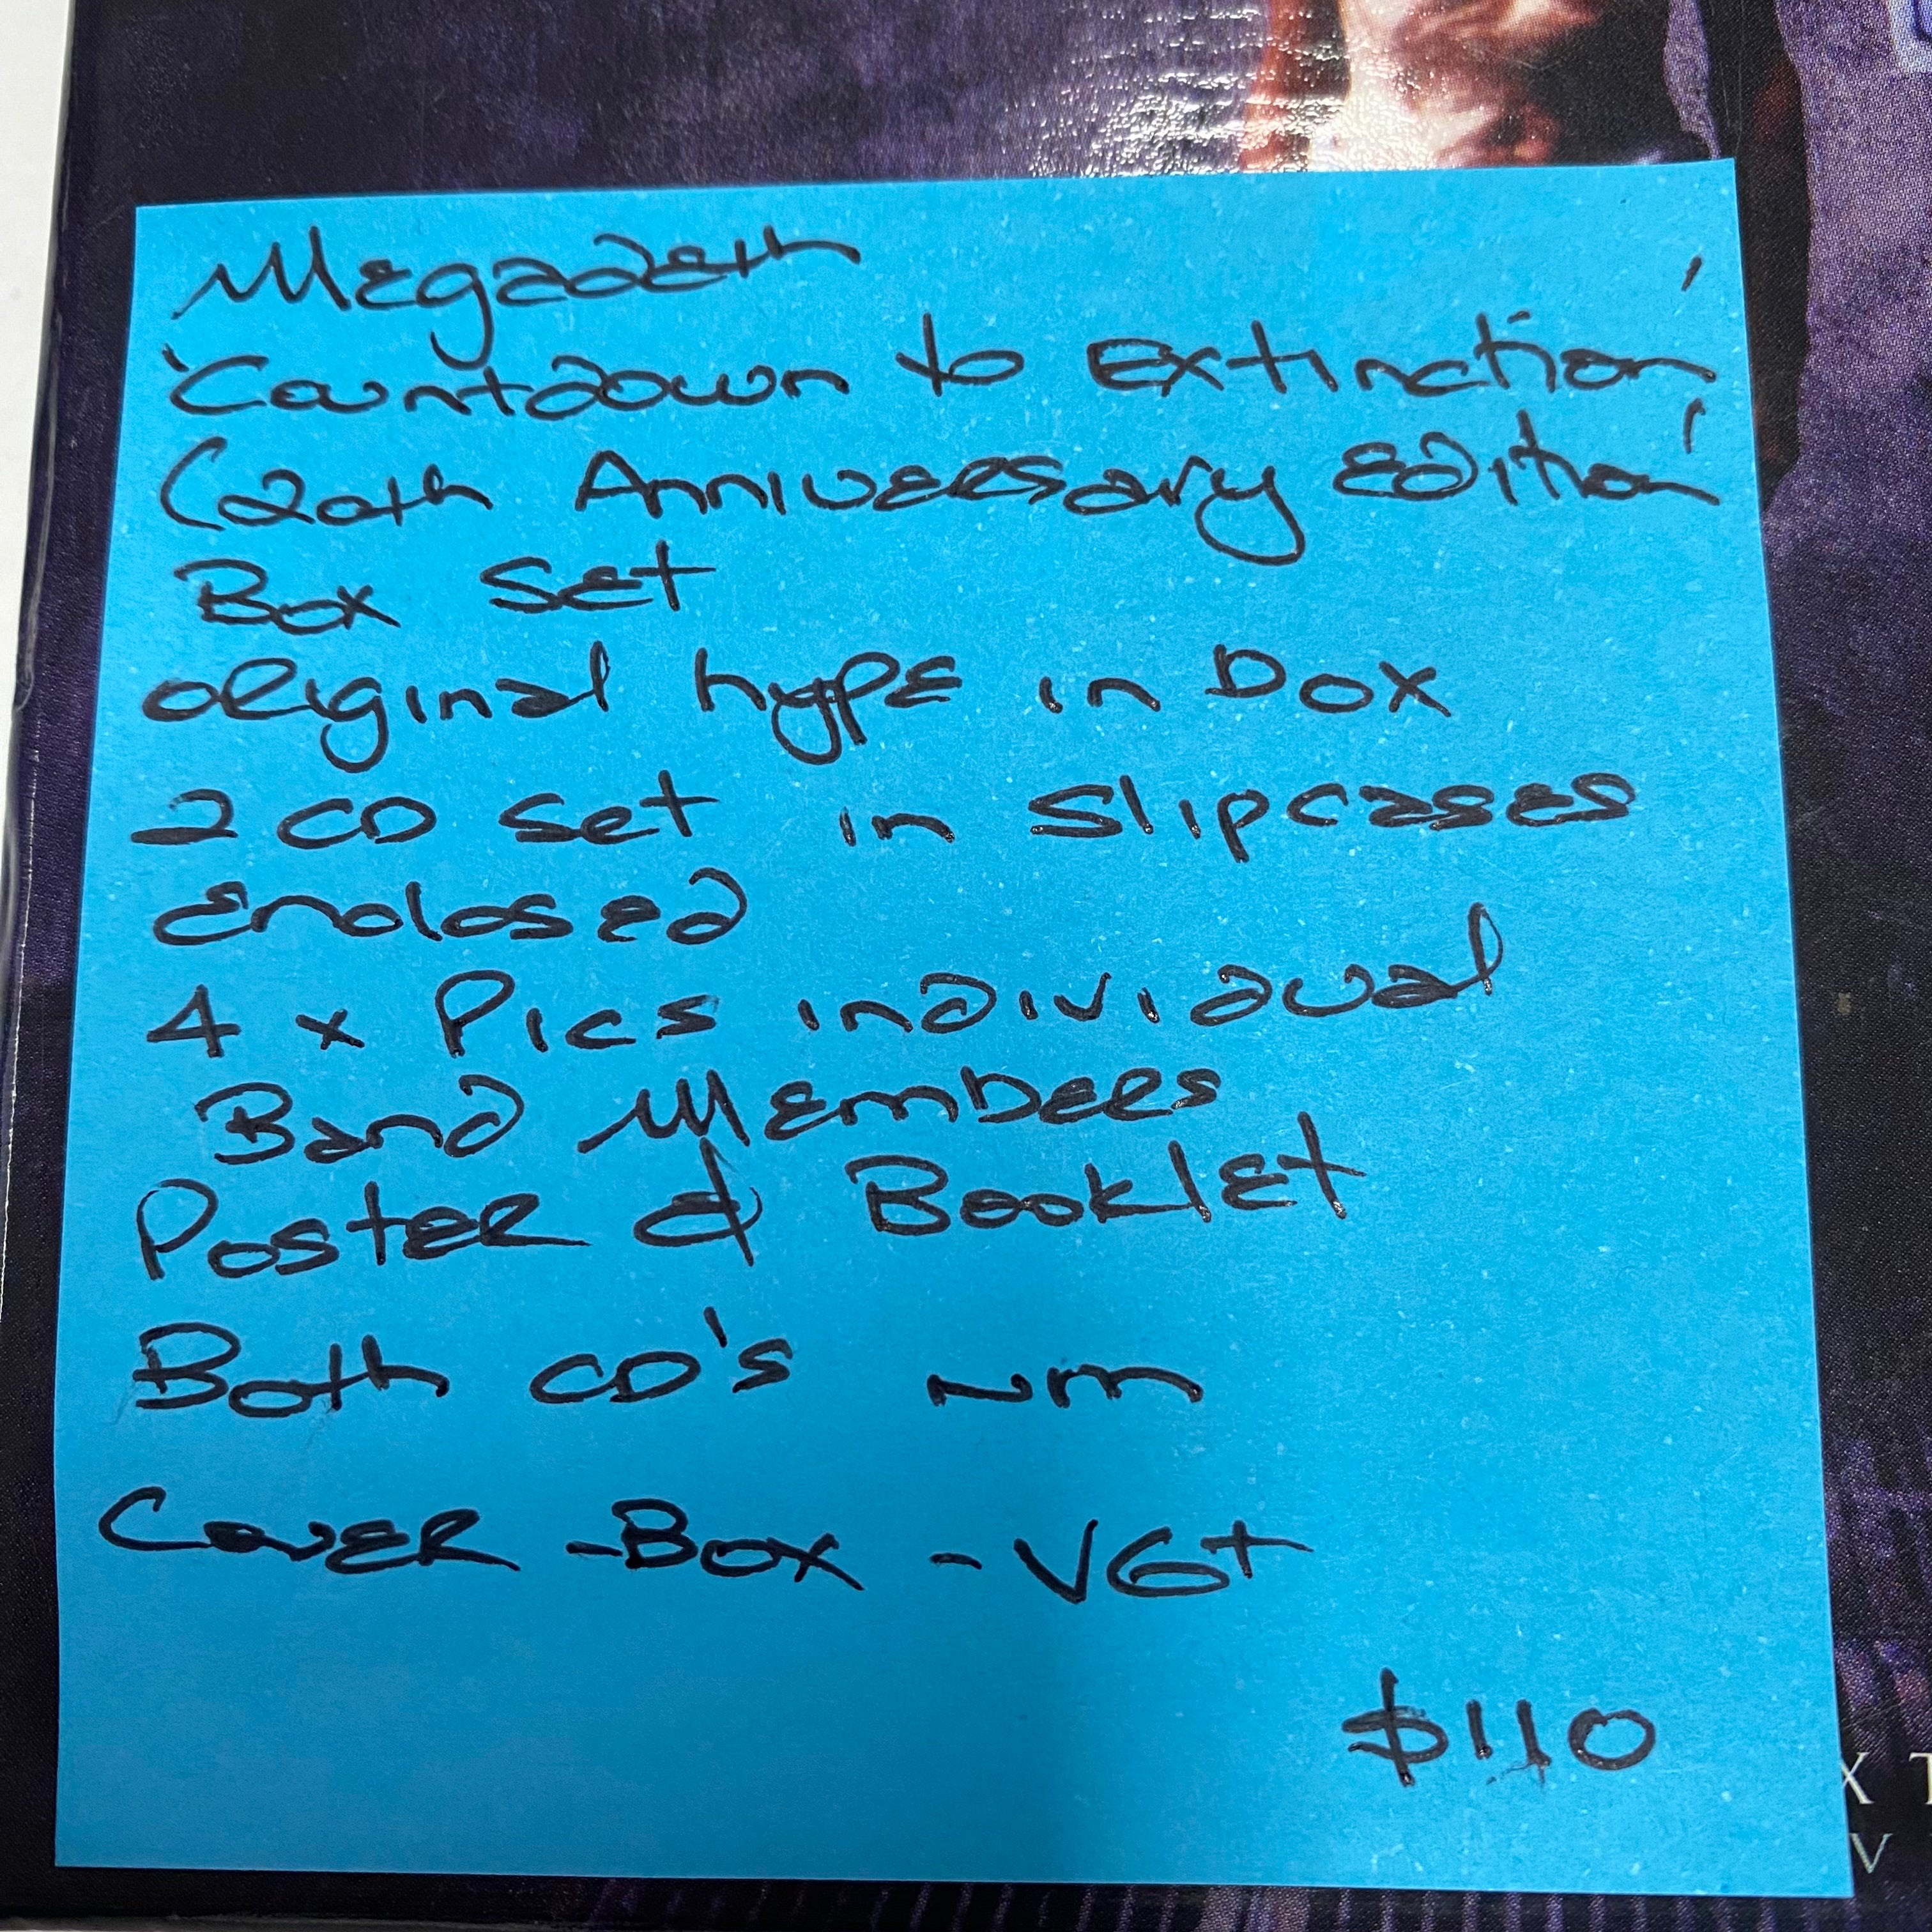 Megadeth
'Countdown to Extinction'
(20th Anniversary Edition'
Box Set
original hype in box
2 CD Set in Slipcases
enclosed
4 x Pics individual
Band Members
Poster & Booklet
Both CD's NM
Cover - Box - VG+
$110
X T
V